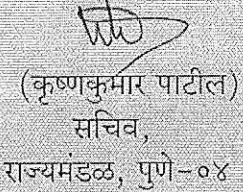 (कृष्णकुमार पाटील)
सचिव,
राज्यमंडळ, पुणे-०४